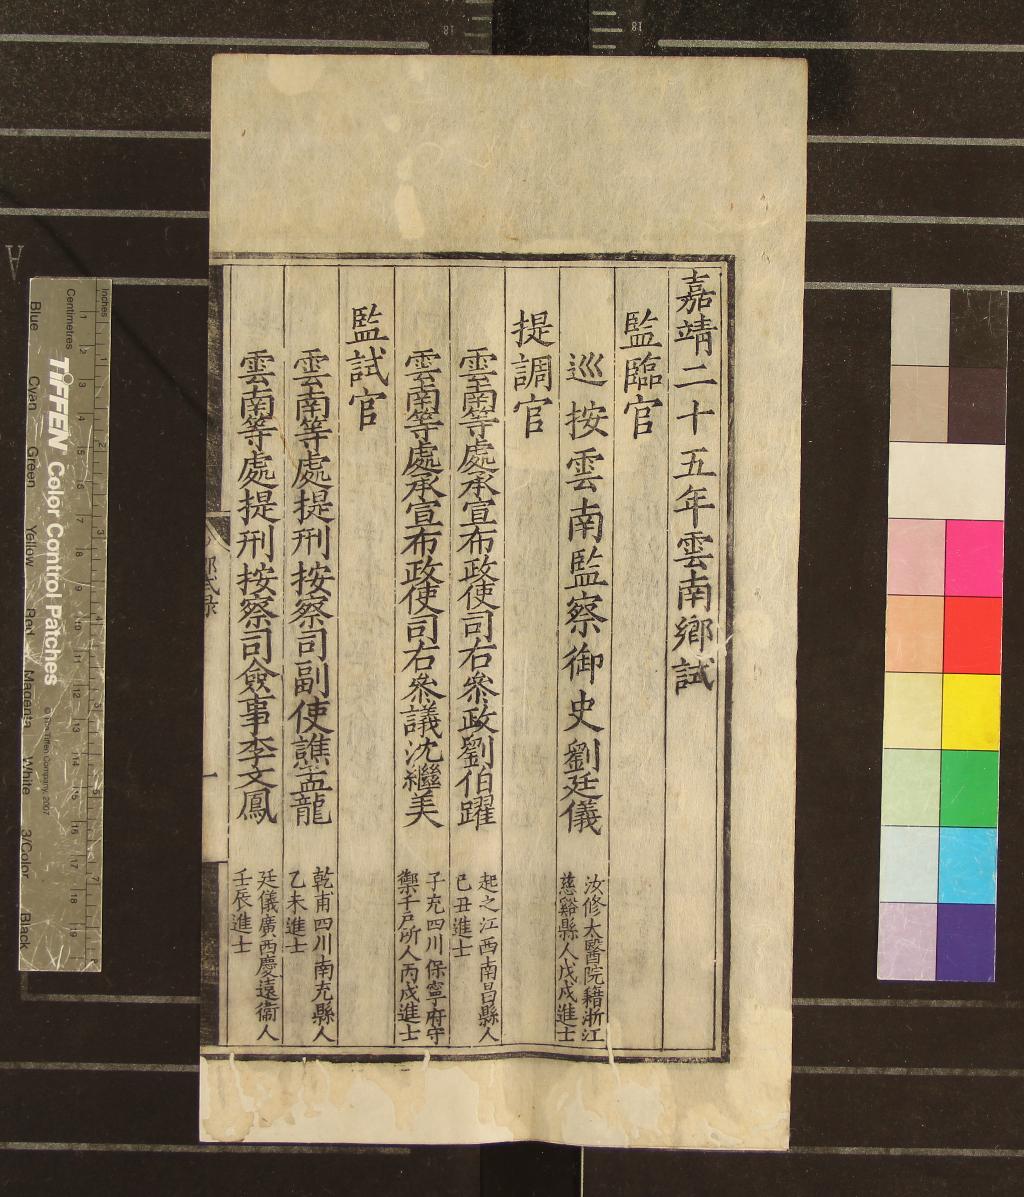 嘉靖二十五年雲南鄉試
監臨官
巡按雲南監察御史劉廷儀
汝修太醫院籍浙江
慈谿縣人戊戌進士
提調官
雲南等處承宣布政使司右叅政劉伯躍
起之江西南昌縣人
己丑進士
雲南等處承宣布政使司右叅議沈繼美
子充四川保寧府守
禦千戶所人丙戌進士
監試官
雲南等處提刑按察司副使譙孟龍
乾甫四川南充縣人
乙未進士
雲南等處提刑按察司僉事李文鳳
廷儀廣西慶遠衞人
壬辰進士
一
TIFFEN Color Control Patches
© The Tiffen Company, 2007
Inches
Centimetres
Blue
Cyan
Green
Yellow
Red
Magenta
White
3/Color
Black
18
18
A